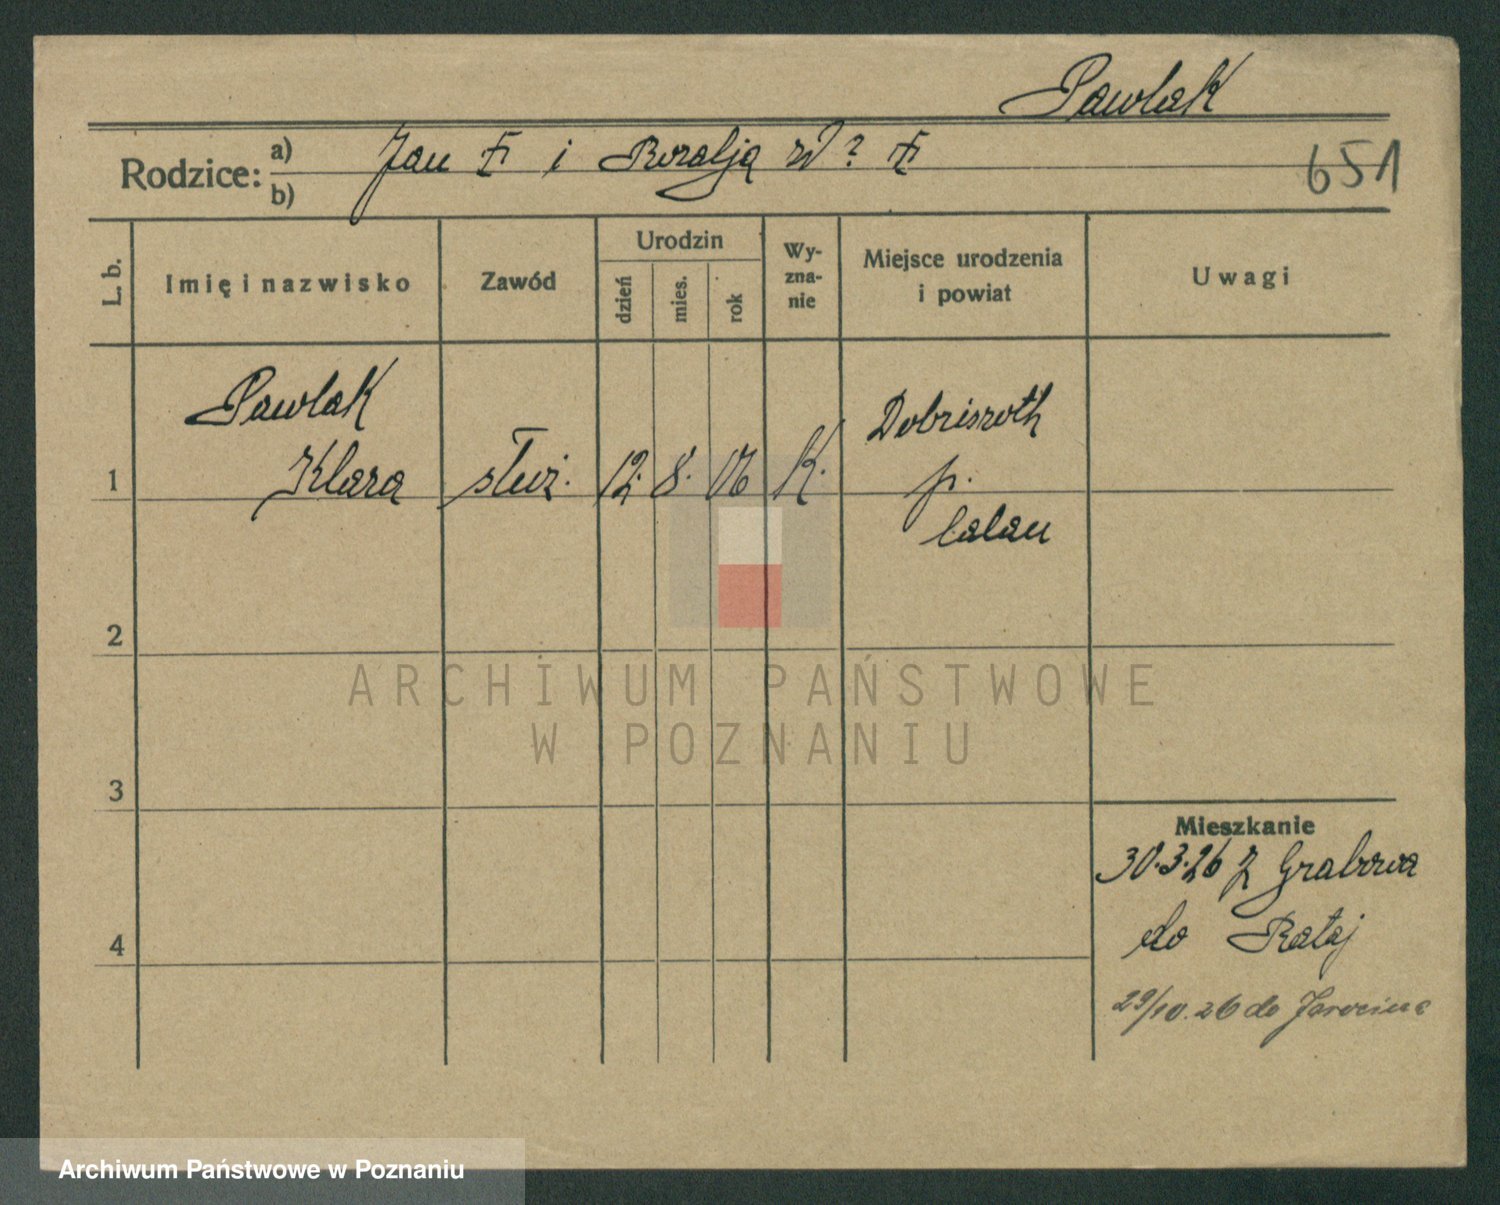 Pawlak
Rodzice: a) Jan i Rozalją
b)
651
L. b. Imię i nazwisko Zawód Urodzin dzień mies. rok Wy-zna-nie Miejsce urodzenia i powiat Uwagi
Pawlak
1 Klara służ. 12. 8. 06 K. Dobrisroth
p.
Calau
2
3
4
Mieszkanie
30.3.26 z Grabowa
do Rataj
29/10.26 do Jarocina
ARCHIWUM PAŃSTWOWE
W POZNANIU
Archiwum Państwowe w Poznaniu